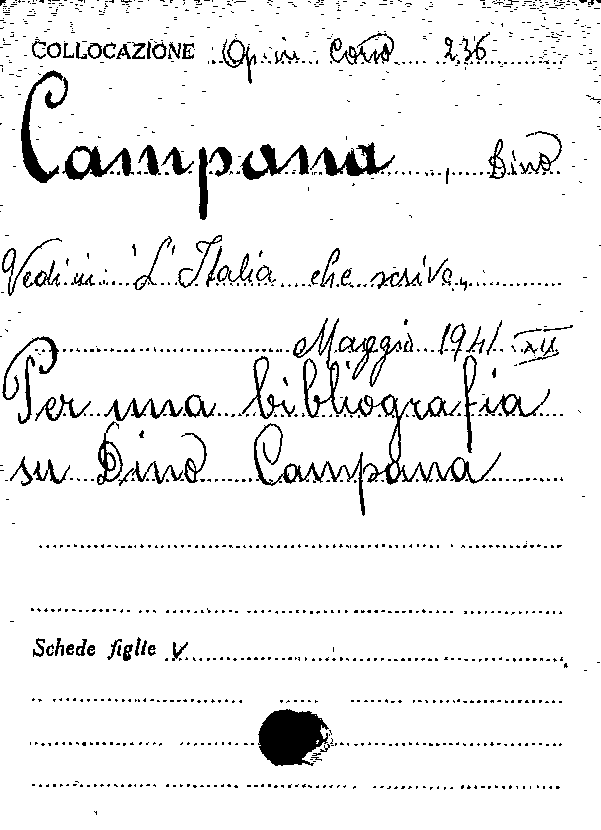 COLLOCAZIONE Op. in Corso 236
Campana, Dino
Vedi in: "L'Italia che scrive"
Maggio 1941 XII
Per una bibliografia
su Dino Campana
Schede figlie V